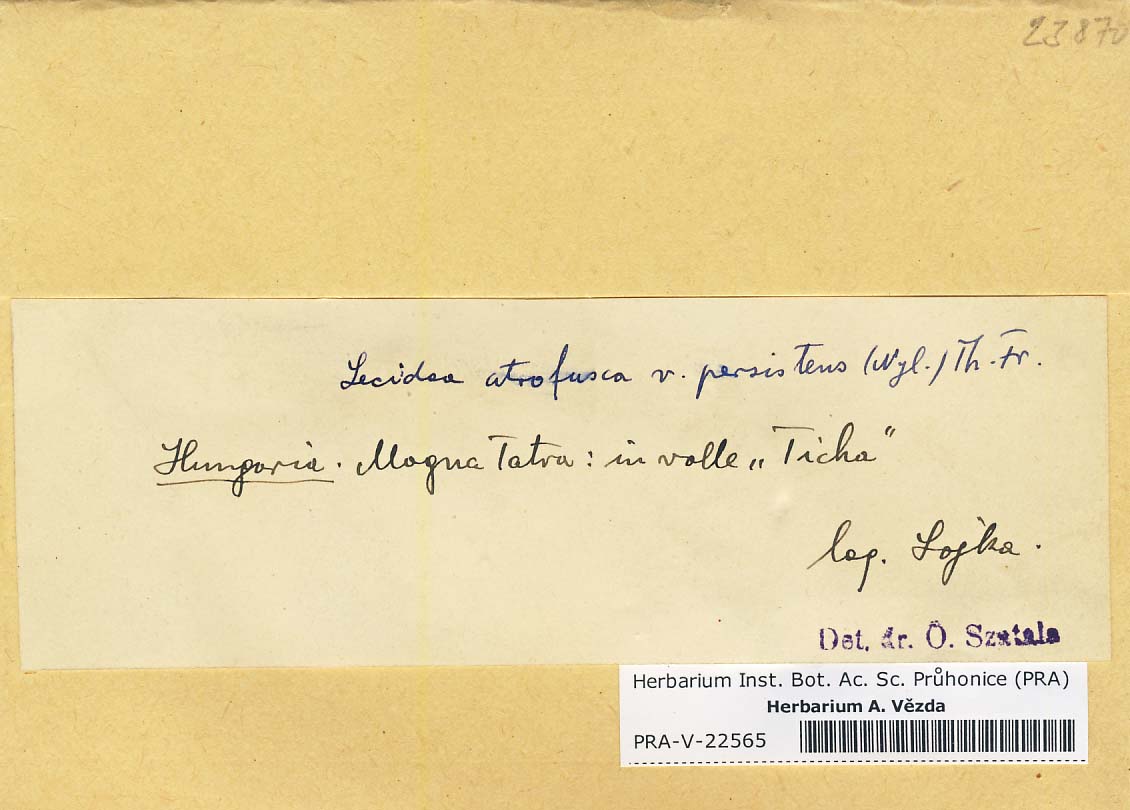 23870
Lecidea atrofusca v. persistens (Nyl.) Th. Fr.
Hungaria. Magna Tatra: in valle „Ticha“
leg. Lojka.
Det. dr. Ö. Szatala
Herbarium Inst. Bot. Ac. Sc. Průhonice (PRA)
Herbarium A. Vězda
PRA-V-22565